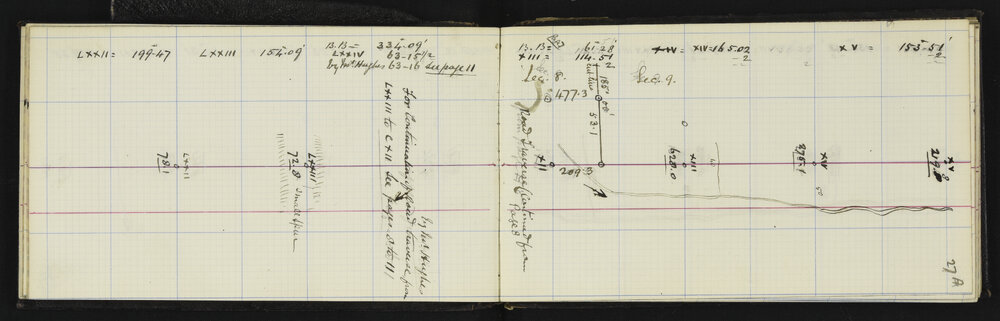 LXXII = 199-47
LXXIII 154.09'
B.B = 334-09'
LXXIV 63-15½
by Mr. Hughes 63-16 See page 11
LXXII
781
LXXIII
72.8
Small Spur
For Continuation of Road traverse from
LXXIII to CXII See pages
by Mr. Hughes
B.B = 61-28
XIII = 114.51
2
XIV = 165.02
-2
XV = 153-51'
-2
Sec. 8
Sec. 9.
477.3
185°
00'
53.1
Road Traverse Continued from
Page 8
XII
209.3
XIII
620.0
XIV
XV
219.8
50
27